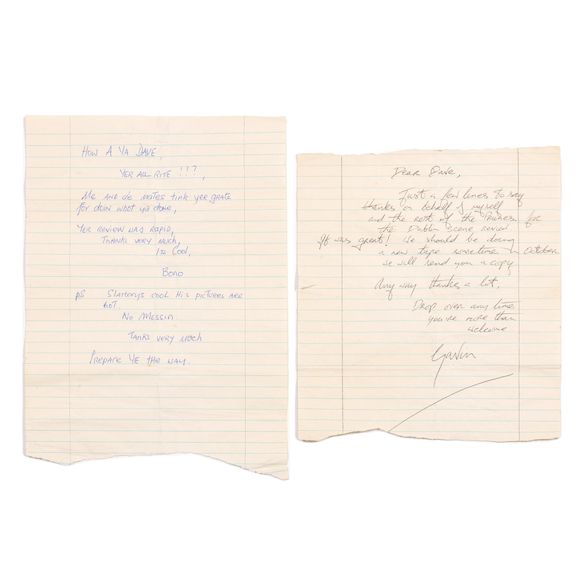 HOW A YA DAVE,
YER ALL RITE !!?,
ME AND DE MATES TINK YER GRATE
for DOIN WOT YA DONE,
YER REVIEW WAS RAPID,
THANKS VERY MUCH,
ITS COOL,
BONO
PS SLATTERYS COOL HIS PICTURES ARE
HOT
NO MESSIN
TANKS VERY MUCH
PREPARE YE THE WAY.
Dear Dave,
Just a few lines to say
thanks on behalf of myself
and the rest of the for
the Dublin Scene
It was great! We should be doing
a new tape sometime in October
we will send you a copy
Any way thanks a lot.
Drop over any time
you're more than
welcome
Gavin